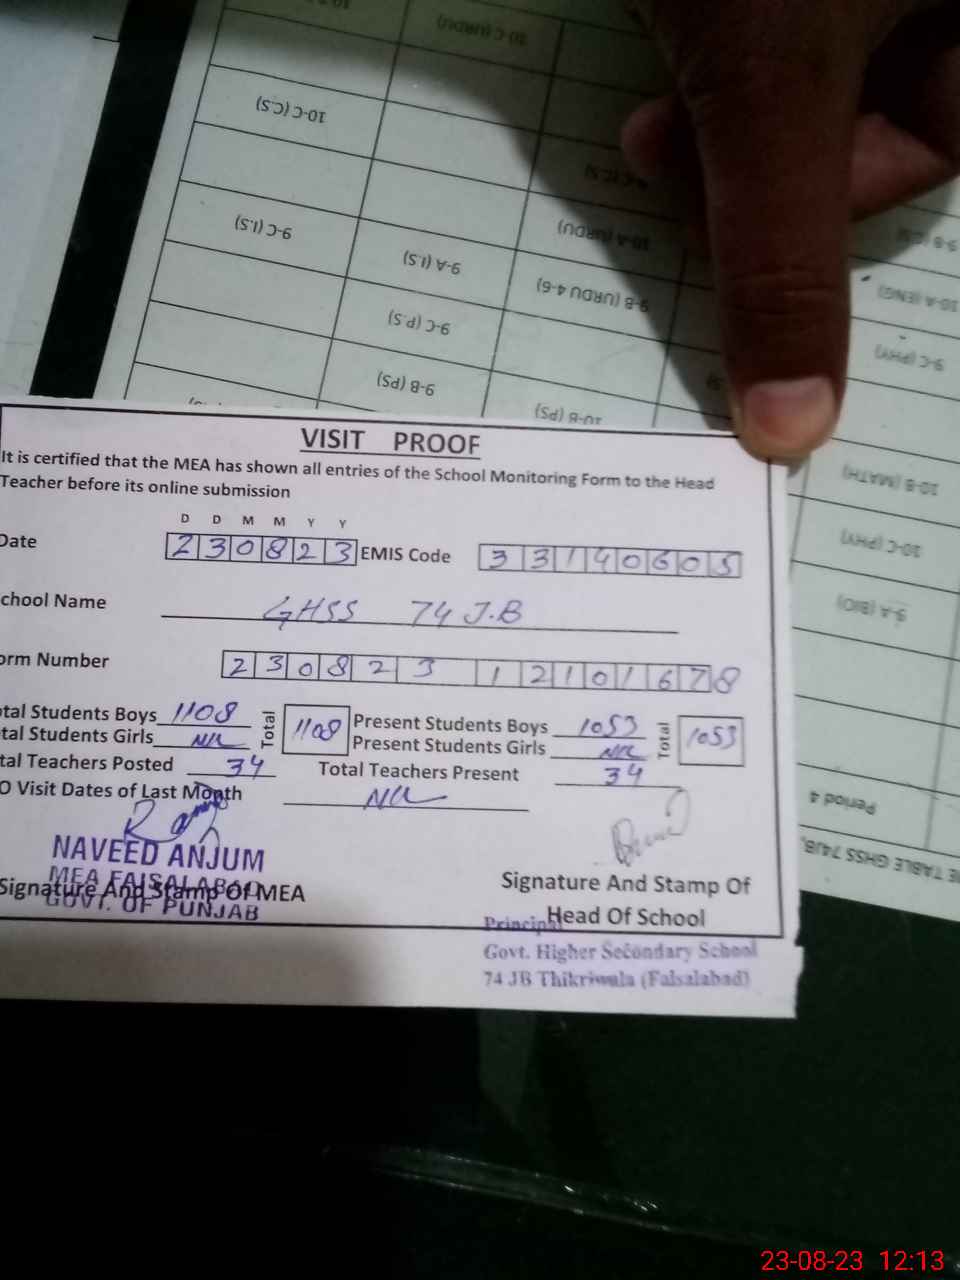 10-C (URDU)
10-C (CS)
9-C (I.S)
9-A (I.S)
10-A (URDU)
9-B (URDU 4-6)
10-A (ENG)
9-C (P.S)
9-C (PHY)
9-B (PS)
10-B (PS)
10-B (MATH)
10-C (PHY)
9-A (BIO)
Period 4
TABLE GHSS 74JB,
VISIT PROOF
It is certified that the MEA has shown all entries of the School Monitoring Form to the Head
Teacher before its online submission
D D M M Y Y
Date 230823 EMIS Code 33140605
chool Name GHSS 74 J.B
orm Number 230823 12101678
tal Students Boys 1108 Total 1108 Present Students Boys 1053 Total 1053
tal Students Girls Nil Present Students Girls Nil
tal Teachers Posted 34 Total Teachers Present 34
O Visit Dates of Last Month Nil
NAVEED ANJUM
MEA FAISALABAD
Signature And Stamp Of MEA
GOVT. OF PUNJAB
Signature And Stamp Of
Head Of School
Principal
Govt. Higher Secondary School
74 JB Thikriwala (Faisalabad)
23-08-23 12:13